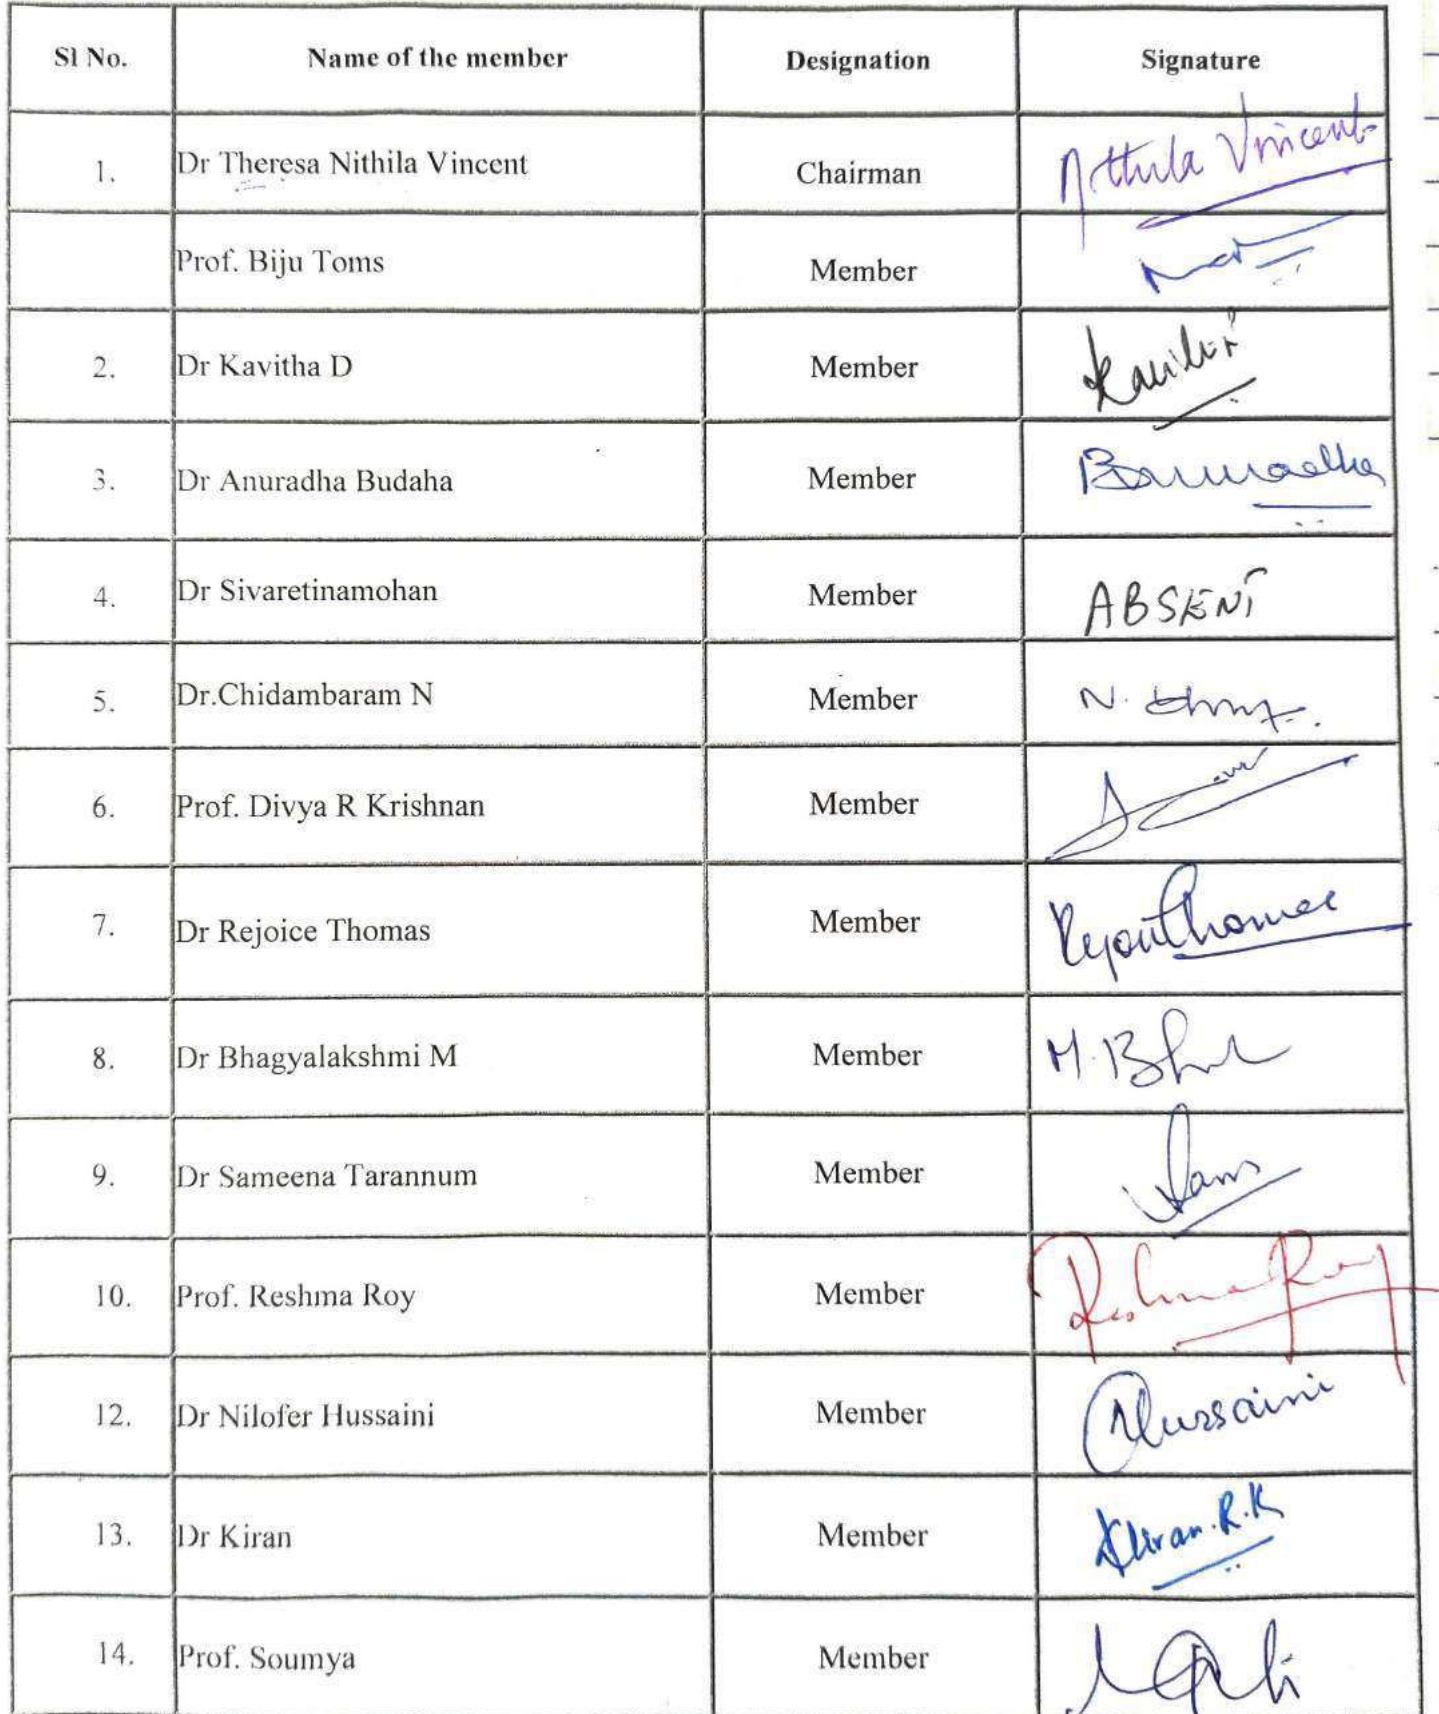 Sl No. Name of the member Designation Signature
1. Dr Theresa Nithila Vincent Chairman Nithila Vincent
Prof. Biju Toms Member
2. Dr Kavitha D Member Kavitha
3. Dr Anuradha Budaha Member BAnuradha
4. Dr Sivaretinamohan Member ABSENT
5. Dr.Chidambaram N Member N.
6. Prof. Divya R Krishnan Member
7. Dr Rejoice Thomas Member Rejoice Thomas
8. Dr Bhagyalakshmi M Member M.
9. Dr Sameena Tarannum Member
10. Prof. Reshma Roy Member Reshma Roy
12. Dr Nilofer Hussaini Member Hussaini
13. Dr Kiran Member Kiran.R.K
14. Prof. Soumya Member